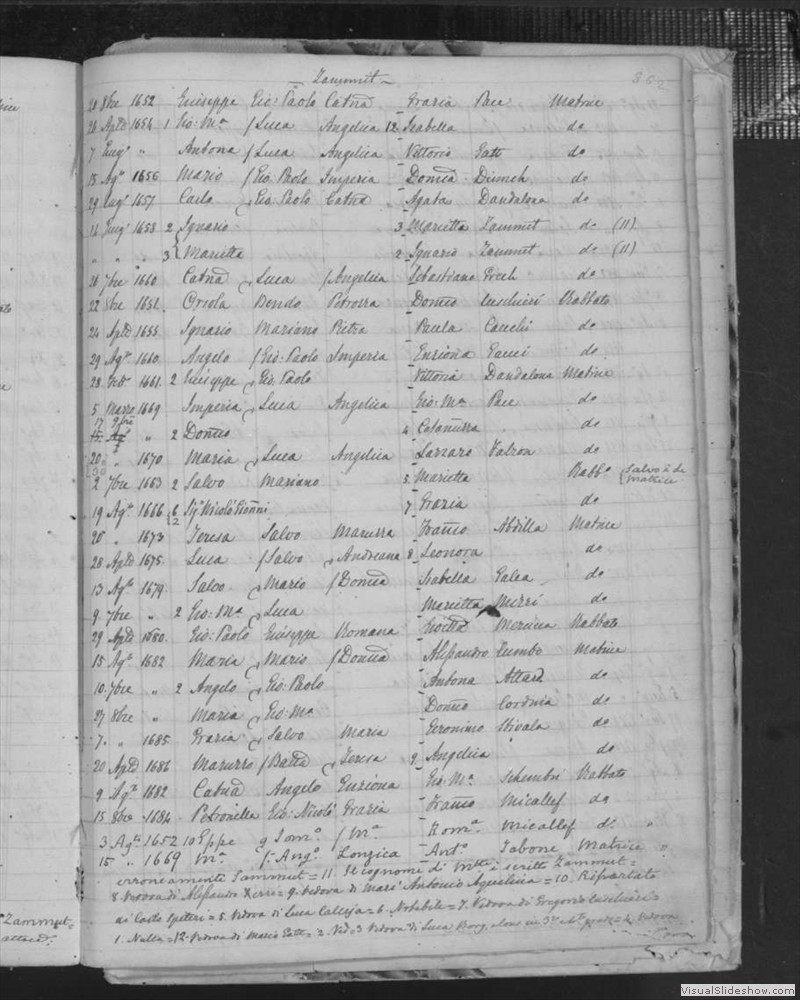 Zammut
352
20 8bre 1652 Giuseppe Gio: Paolo Catna Grazia Pace Matrice
26 Aple 1654 1 Gio: Ma Luca Angelica 12 Isabella do
7 " Antona Luca Angelica Vittorio Gatt do
15 Agto 1656 Mario Gio Paolo Imperia Domca Dimech do
29 1657 Carlo Gio Paolo Catna Agata Dandalona do
16 1658 2 Ignazio 3 Marietta Zammut do (11)
" " " 3 Marietta 2 Ignazio Zammut do (11)
20 7bre 1660 Catna Luca Angelica Sebastiano Grech do
22 8bre 1651 Orsola Bendo Petrorra Domco Cuschieri Rabbato
24 Aple 1655 Ignazio Mariano Pietra Paula Cauchi do
29 Agto 1660 Angelo Gio: Paolo Imperia Enziona Gauci do
28 1661 2 Giuseppe Gio. Paolo Vittoria Dandalona Matrice
5 Marzo 1669 Imperia Luca Angelica Gio: Ma Pace do
17 9bre
" 2 Domco 4 do
20 " 1670 Maria Luca Angelica Lazzaro Falzon do
30
2 7bre 1663 2 Salvo Mariano 5 Marietta Rabbo Salvo è da matrice
19 Agto 1666 6 2 7 Grazia do
20 " 1673 Teresa Salvo Marurra Franco Abdilla Matrice
28 Aple 1675 Luca Salvo Andreana 8 Leonora do
13 Agto 1679 Salvo Mario Domca Isabella Galea do
9 7bre " 2 Gio: Ma Luca Marietta Mizzi do
29 Aple 1680 Gio: Paolo Giuseppe Romana Mercieca Rabbato
15 Agto 1682 Maria Mario Domca Alessandro Zumbo Matrice
10 7bre " 2 Angelo Gio: Paolo Antona Attard do
27 8bre " Maria Gio: Ma Domco Cordina do
7 " 1685 Grazia Salvo Maria Geronimo Stivala do
20 Aple 1686 Marurro Batta Teresa 9 Angelica do
9 Agto 1682 Catna Angelo Enziona Gio: Ma Schembri Rabbato
15 8bre 1684 Petronilla Gio: Nicolò Grazia Franco Micallef do
3 Agto 1652 10 Eppe 9 Domo Ma Roma Micallef do "
15 " 1669 Ma Ango Lonzica Anto Tabone Matrice "
erroneamente Sammut = 11. Il cognome di è scritto Zammut =
8. Vedova di Alessandro Xerri = 9. Vedova di Antonio Aquilina = 10. Riportato
di Casto Spiteri = 5. Vedova di Luca Calleja = 6. Nobabile = 7. Vedova di Gregorio Cuschieri =
1. Nulla = 12. Vedova di Mario Gatt = 2. Vedo 3 Vedova di Luca Borg, Vedova
Zammut